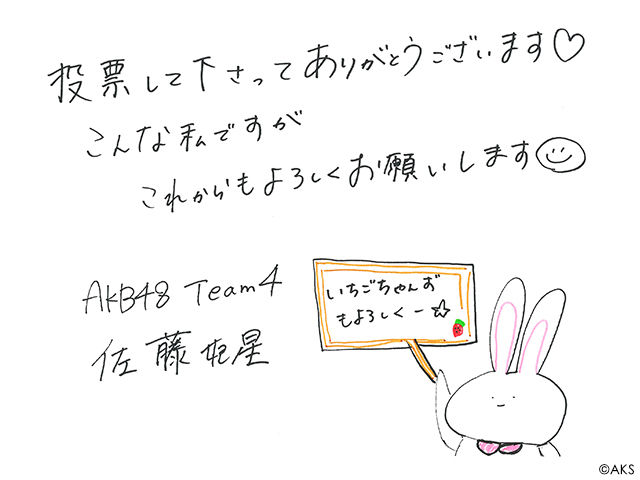 投票して下さってありがとうございます♡
こんな私ですが
これからもよろしくお願いします☺
AKB48 Team4
佐藤妃星
いちごちゃんお
もよろしくー☆
©AKS